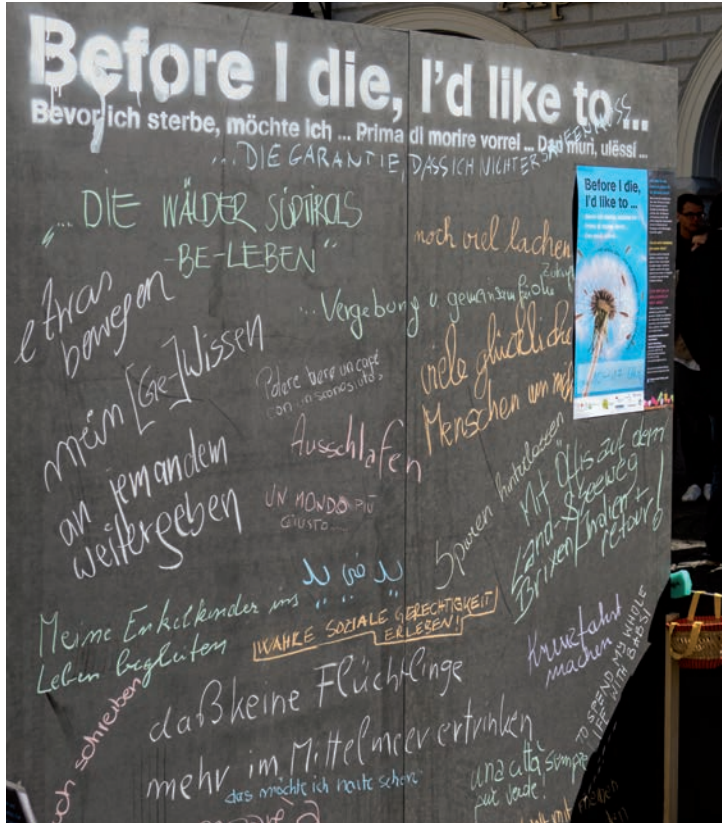 Before I die, I'd like to ...
Bevor ich sterbe, möchte ich ... Prima di morire vorrei ... Dad muri, ulëssi ...
...DIE GARANTIE, DASS ICH NICHT ERSAUFEN MUSS
"... DIE WÄLDER SÜDTIROLS
-BE-LEBEN"
noch viel lachen
etwas
bewegen
...Vergebung u. gemeinsam frohe
Zukunft
mein [Ge-]Wissen
an jemandem
weitergeben
Potere bere un cafè
con un sconosciuto
viele glückliche
Menschen um mich
Ausschlafen
UN MONDO PIÙ
GIUSTO...
Spuren hinterlassen
Mit Öffis auf dem
Land-Seeweg
Brixen/Indien +
retour!
Meine Enkelkinder ins
Leben begleiten
WAHRE SOZIALE GERECHTIGKEIT
ERLEBEN!
Kreuzfahrt
machen
TO SPEND MY WHOLE
LIFE WITH BABSI
daß keine Flüchtlinge
mehr im Mittelmeer ertrinken
das möchte ich heute schon
schreiben
una città sempre
più verde!
Before I die,
I'd like to ...